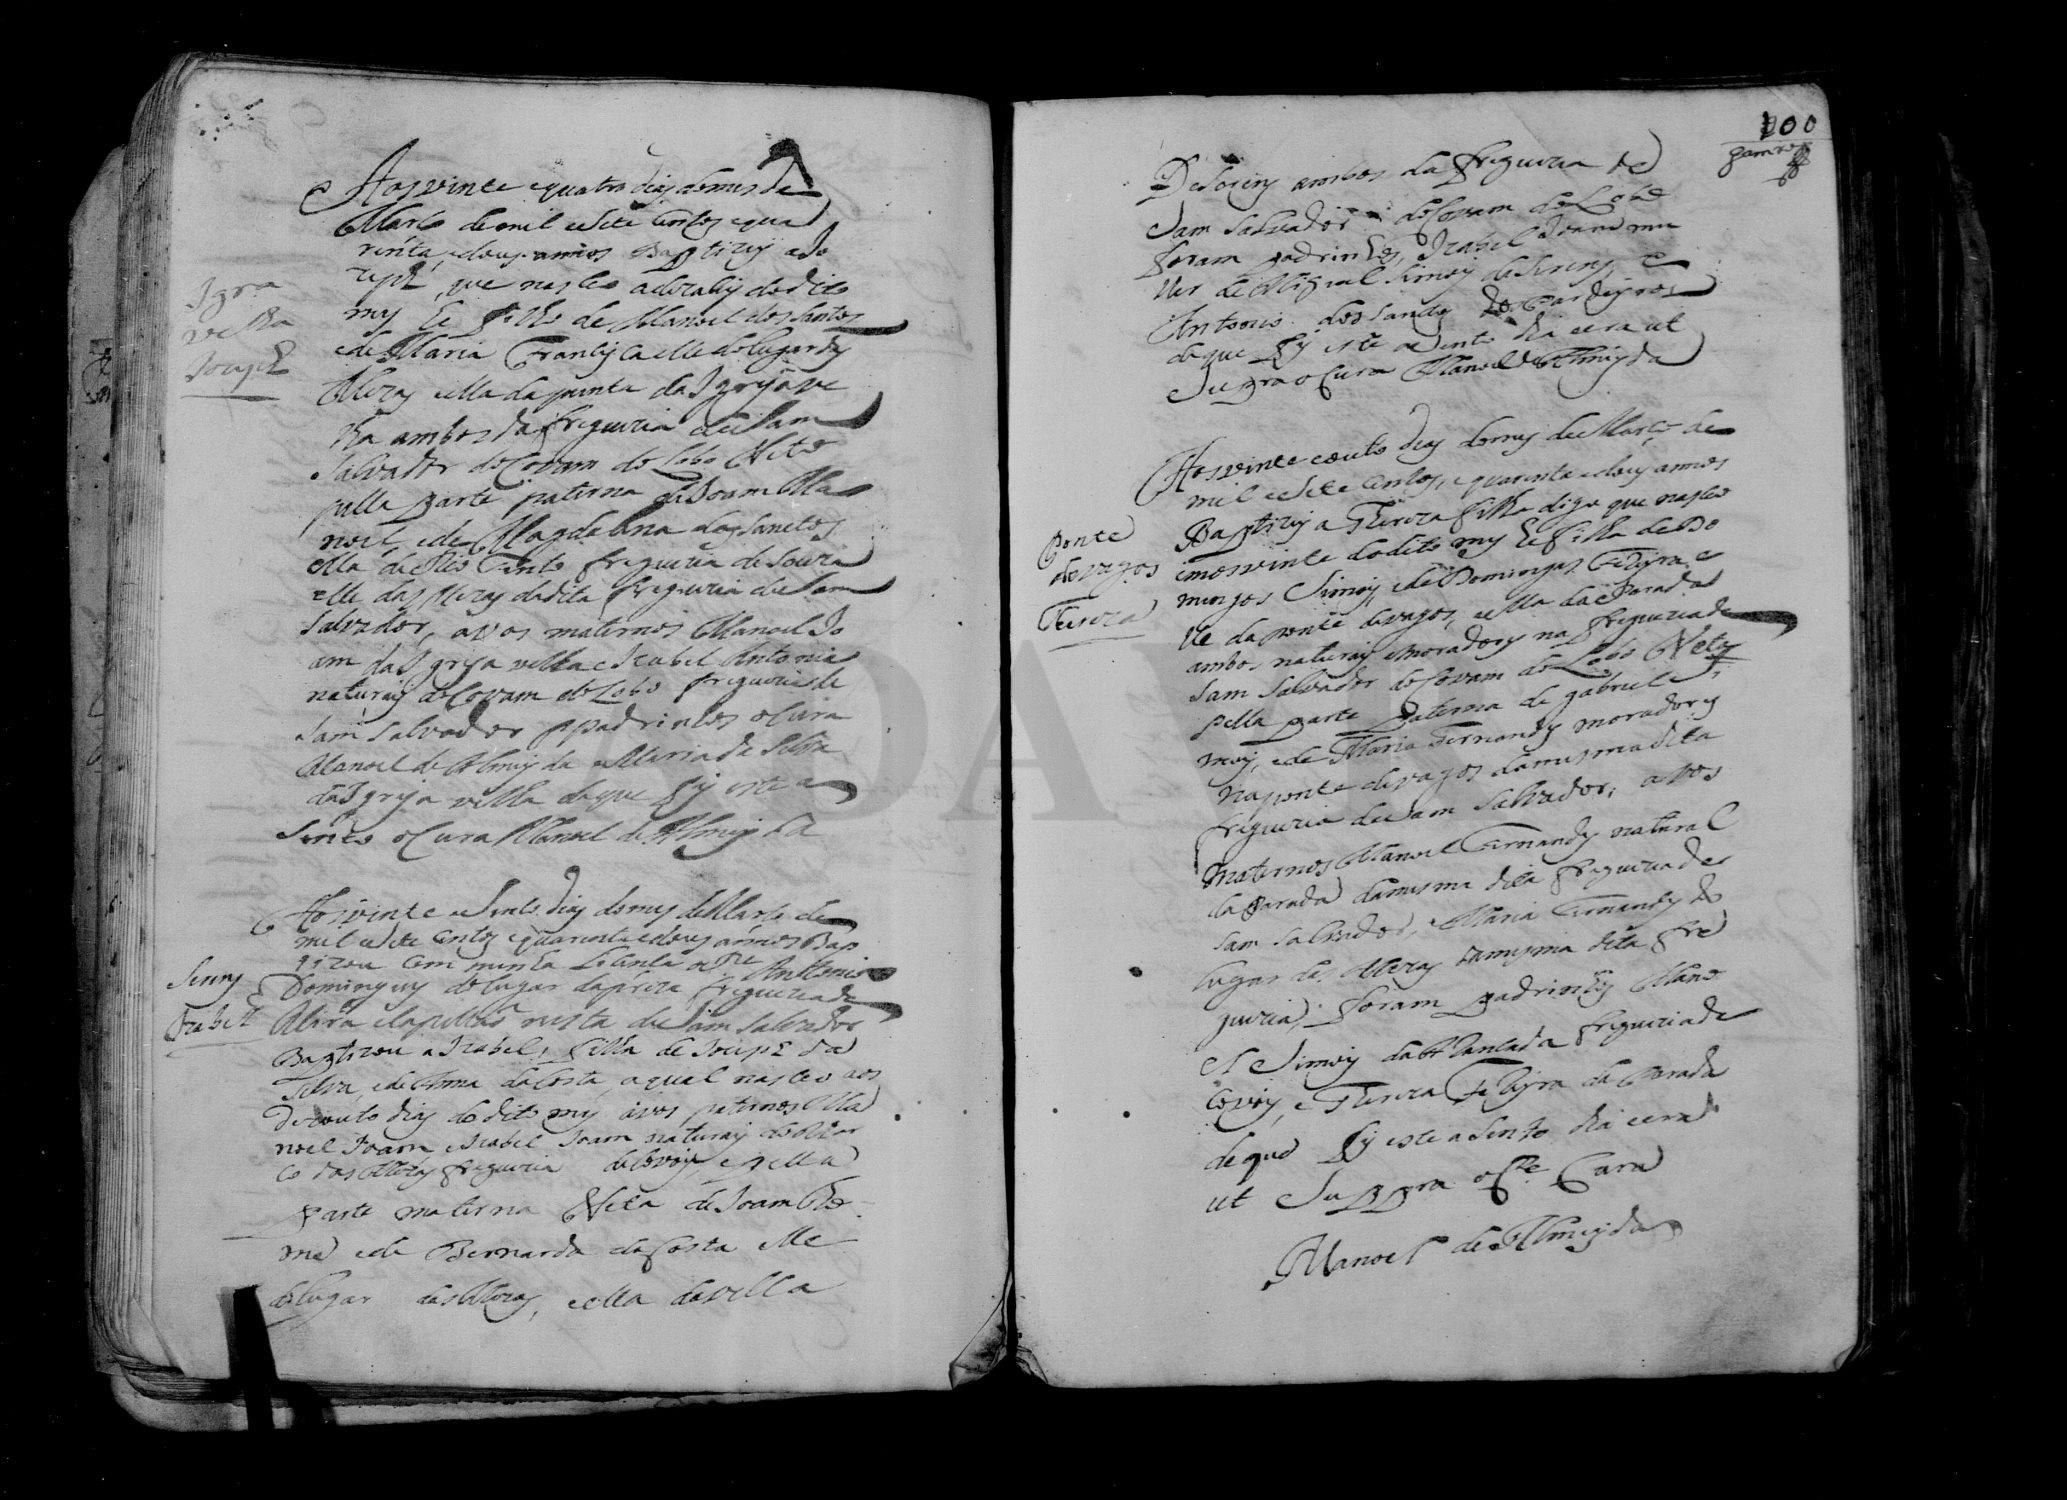 Aos vinte e quatro dias do mes de
Marco de mil e sete centos e qua
renta e dous annos Baptizei a Jo
zeph, que nasceo a do dito
mes he filho de Manoel dos Santos
e de Maria Francisca elle do lugar das
Meras ella da junta da Igreja ve
lha ambos da freguezia de Sam
Salvador do Covam do Lobo Neto
pella parte paterna de Joam Ma
noel, e de Magdalena dos Sanctos
ella de Rio Tinto freguezia de Souza
elle das Meras da dita freguezia de Sam
Salvador, avos maternos Manoel Jo
am da Igreja velha e Izabel Antonia
naturais do Covam do Lobo freguezia de
Sam Salvador padrinhos o Cura
Manoel de Almeyda e Maria da Silva
da Igreja velha de que fis este a
sento o Cura Manoel de Almeyda
Igra
velha
Jozeph
Aos vinte e sinto dias do mes de Marso de
mil e sete centos e quarenta e dous annos Bap
tizou com minha licensa o Pe Antonio
Domingues do lugar da freguezia de
Mira e lapellas nesta de Sam Salvador
Baptizou a Izabel, filha de Jozeph da
Silva, e de Anna da Costa, a qual nasceo aos
dezouto dias do dito mes avos paternos Ma
noel Joam e Izabel Joam naturais do
Co das Meras freguezia de Covois, e pella
parte materna Neta de Joam Tho
me e de Bernarda da Costa elle
do lugar das Meras, e ella da villa
Serins
Izabel
100
De Sorins ambos da freguezia de
Sam Salvador do Covam do Lobo
foram padrinhos, Izabel Joam mu
lher de Miguel Simois de Serins, e
Antonio dos Sanctos dos Cardeyros
de que fis este asento dia e era ut
Supra o Cura Manoel de Almeyda
Aos vinte e outo dias do mes de Marco de
mil e sete centos, e quarenta e dous annos
Baptizei a Thereza filha digo que nasceo
em os vinte do dito mes he filha de Do
mingos Simois, e de Domingas Ferreyra e
lle da ponte de vagos, e ella da Parada
ambos naturais e moradores na freguezia de
Sam Salvador do Covam do Lobo Neta
pella parte paterna de gabriel Si
mois, e de Maria Fernandes moradores
na ponte de vagos da mesma dita
freguezia de Sam Salvador, avos
maternos Manoel Fernandes natural
da Parada da mesma dita freguezia de
Sam Salvador, e Maria Fernandes do
lugar das Meras da mesma dita fre
guezia, foram padrinhos Mano
el Simois da freguezia de
Covois, e Thereza Ferreyra da Parada
de que fis este asento dia e era
ut Supra o Pe Cura
Manoel de Almeyda
Ponte
de vagos
Thereza